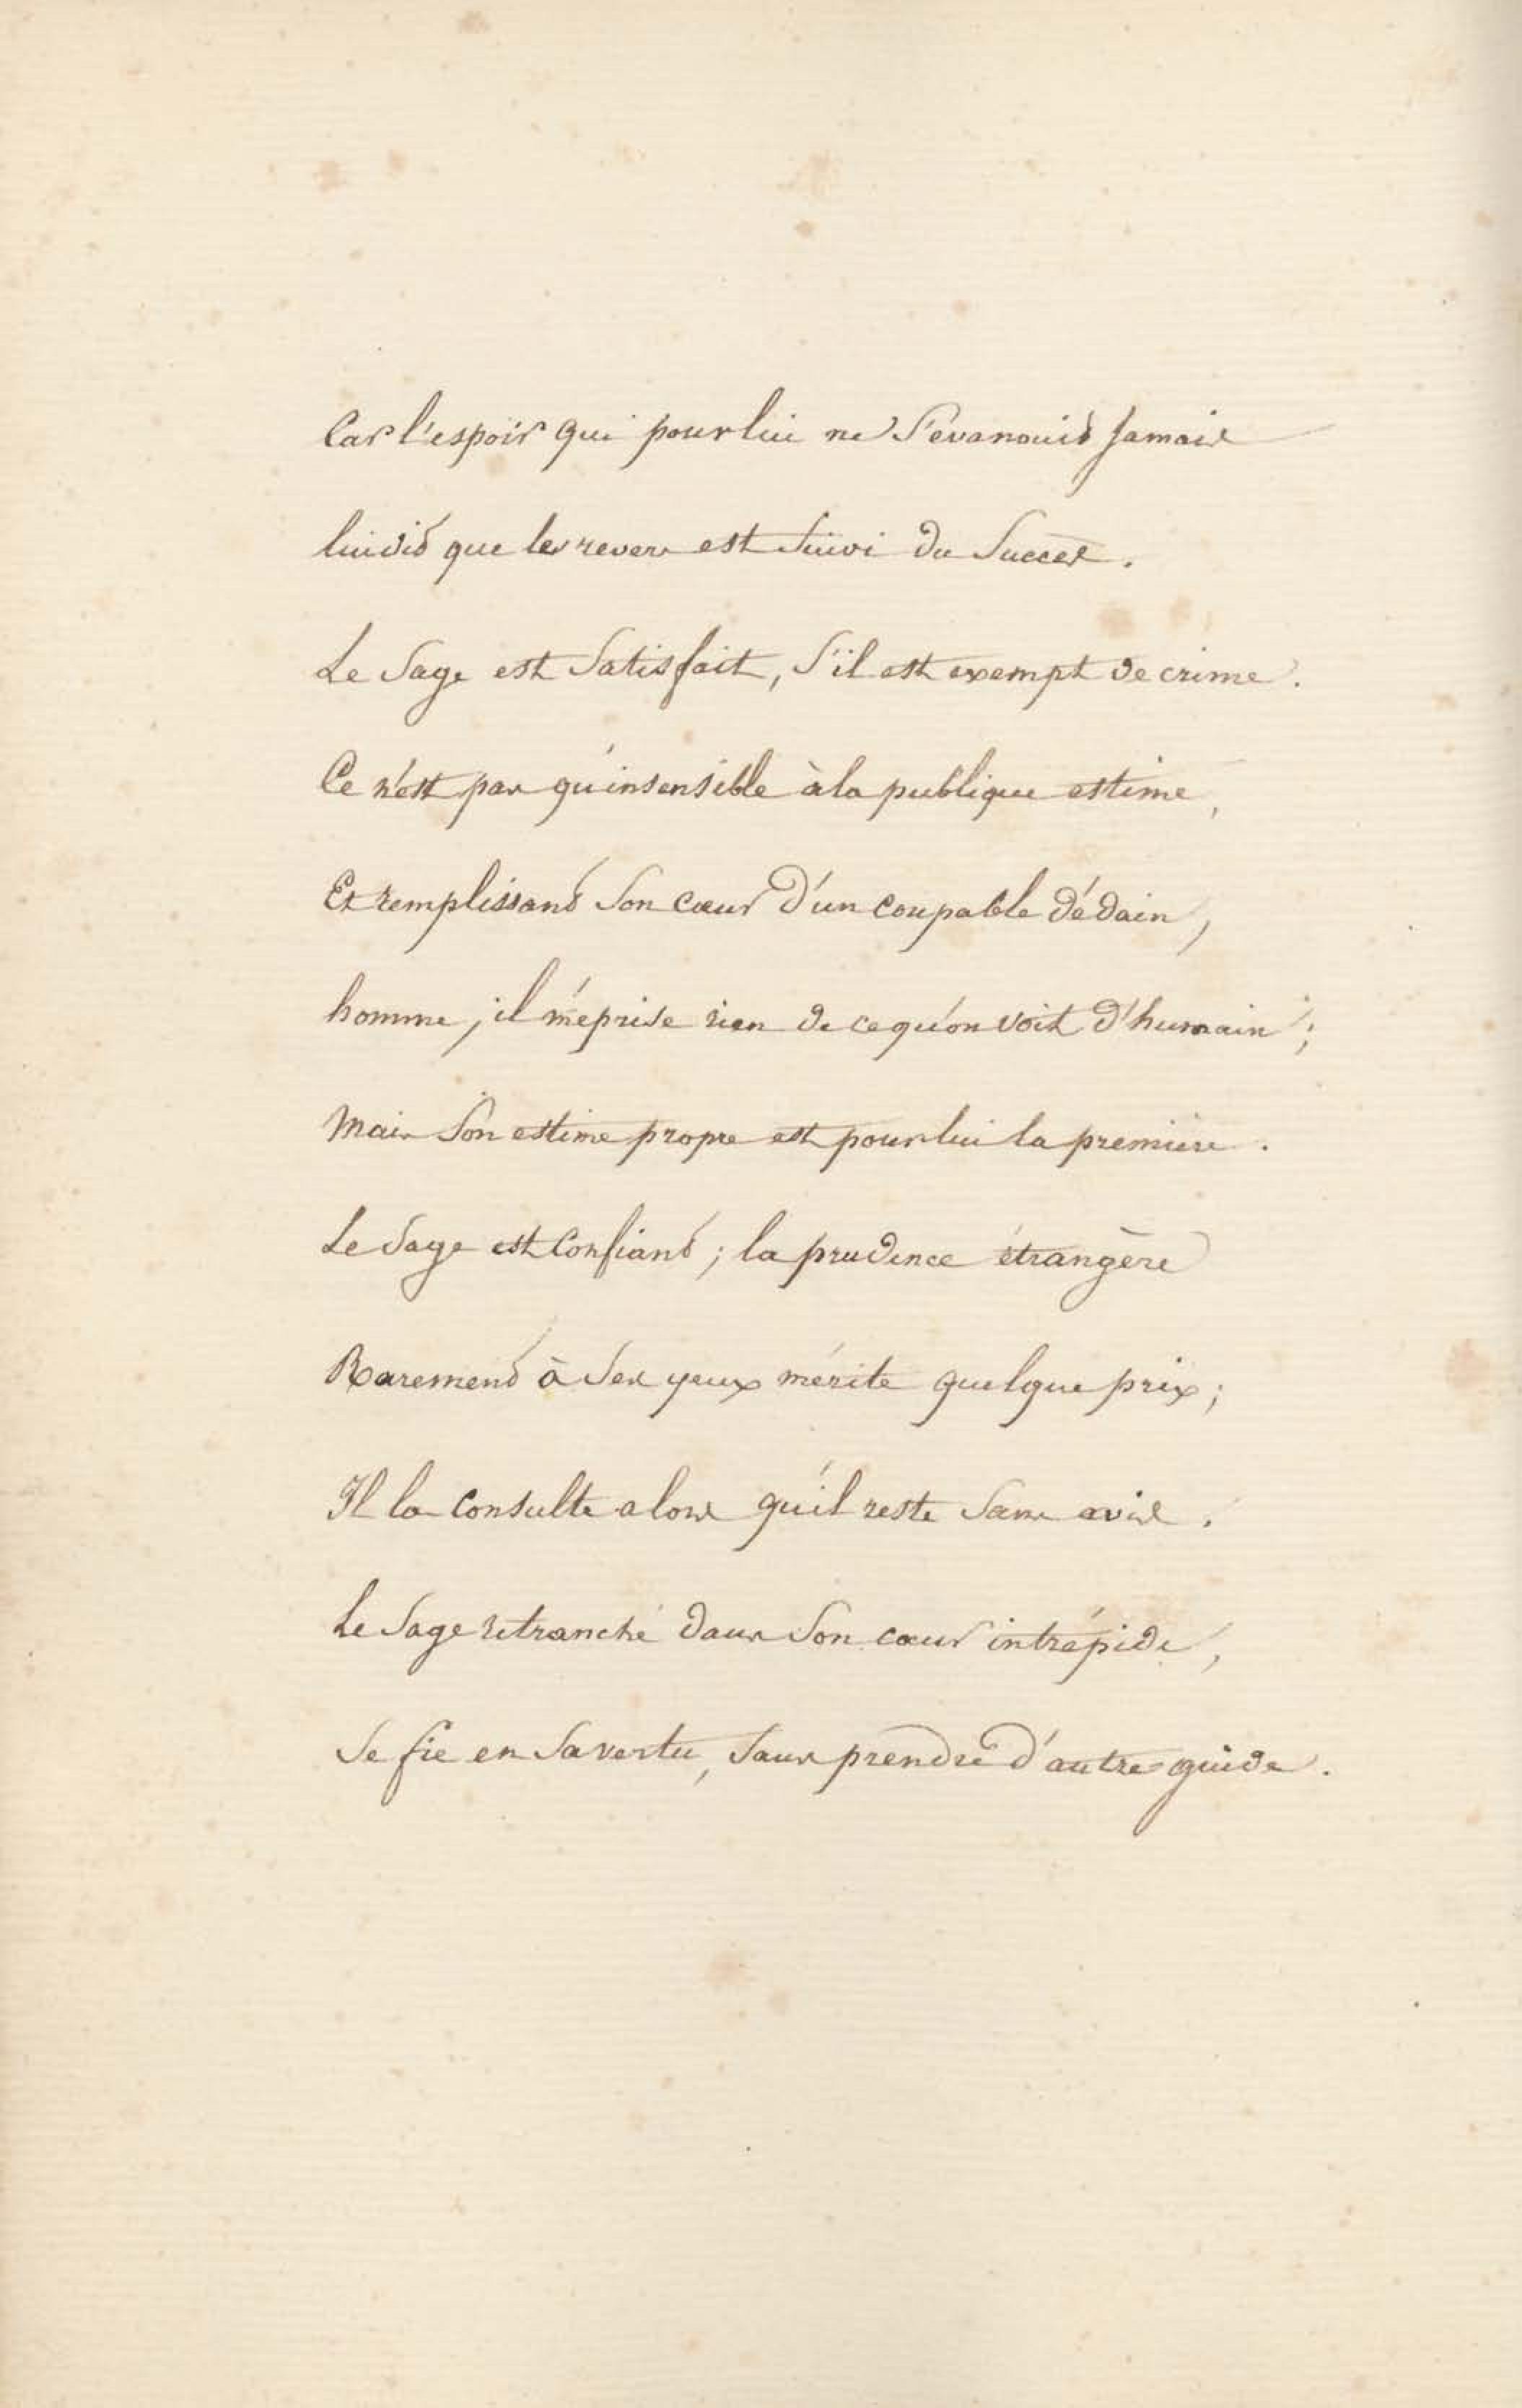 Car l'espoir qui pour lui ne s'évanouit jamais
lui dit que les revers est suivi du succes.
Le Sage est Satisfait, S'il est exempt de crime.
Ce n'est pas qu'insensible à la publique estime,
Et remplissant Son cœur d'un coupable dédain,
homme, il méprise rien de ce qu'on voit d'humain ;
Mais Son estime propre est pour lui la première.
Le Sage est Confiant ; la prudence étrangère
Rarement à Ses yeux mérite quelque prix ;
Il la Consulte alors qu'il reste Sans avis.
Le Sage retranché dans Son cœur intrépide,
Se fie en Sa vertu, Sans prendre d'autre guide.